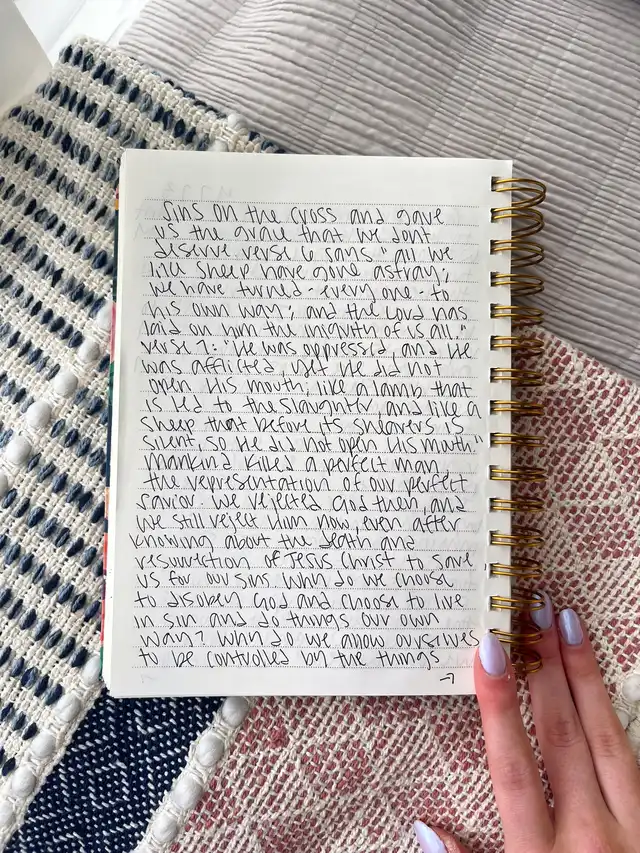 sins on the cross and gave
us the grace that we dont
deserve. verse 6 says "all we
like sheep have gone astray;
we have turned - every one - to
his own way; and the Lord has
laid on him the iniquity of us all."
verse 7: "He was oppressed, and He
was afflicted, yet He did not
open His mouth; like a lamb that
is led to the slaughter, and like a
sheep that before its shearers is
silent, so He did not open His mouth."
mankind killed a perfect man
the representation of our perfect
savior. we rejected God then, and
we still reject Him now, even after
knowing about the death and
resurrection of Jesus Christ to save
us for our sins. Why do we choose
to disobey God and choose to live
in sin and do things our own
way? Why do we allow ourselves
to be controlled by the things
→